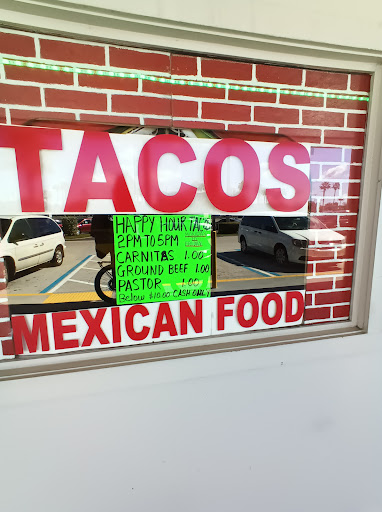 TACOS
HAPPY HOUR TACO
2PM TO 5PM
CARNITAS 1.00
GROUND BEEF 1.00
PASTOR 1.00
Below $10.00 CASH ONLY
MEXICAN FOOD